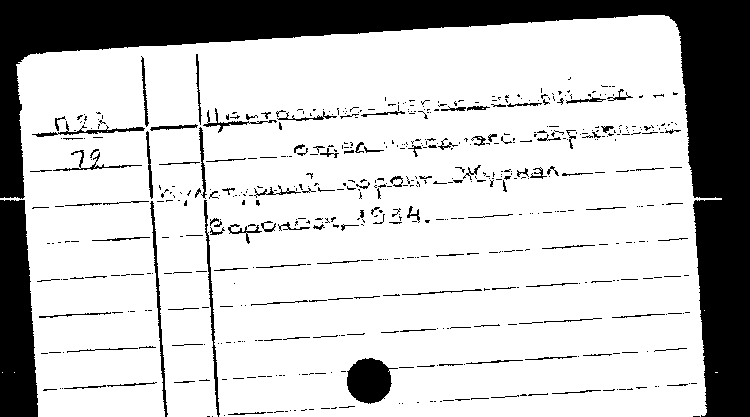 П28
72
Центрально-Черноземный обл. ...
отдел народного образования
Культурный фронт. Журнал.
Воронеж, 1934.